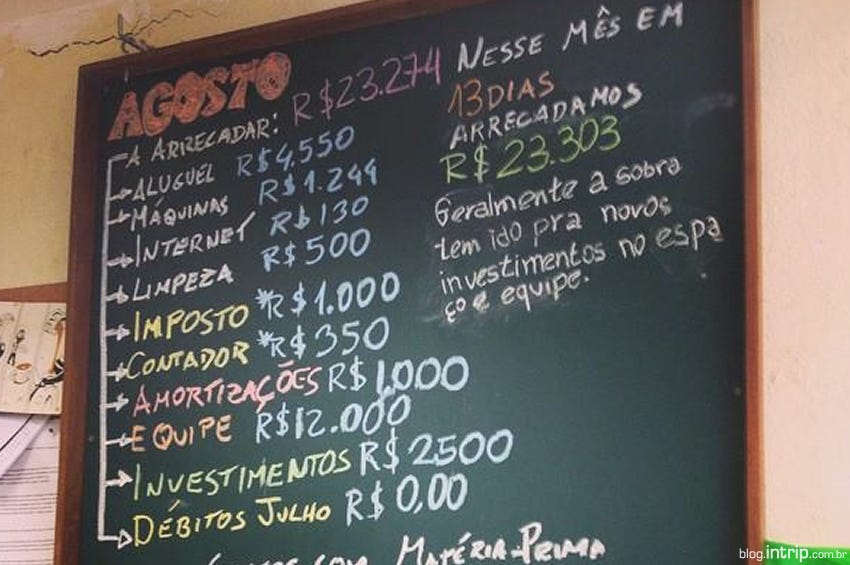 AGOSTO
A ARRECADAR: R$23.274
ALUGUEL R$4.550
MÁQUINAS R$1.244
INTERNET R$130
LIMPEZA R$500
IMPOSTO *R$1.000
CONTADOR *R$350
AMORTIZAÇÕES R$1.000
EQUIPE R$12.000
INVESTIMENTOS R$2500
DÉBITOS JULHO R$0,00
COM MATÉRIA-PRIMA
NESSE MÊS EM
13 DIAS
ARRECADAMOS
R$23.303
Geralmente a sobra
tem ido pra novos
investimentos no espa
ço e equipe.
blog.intrip.com.br